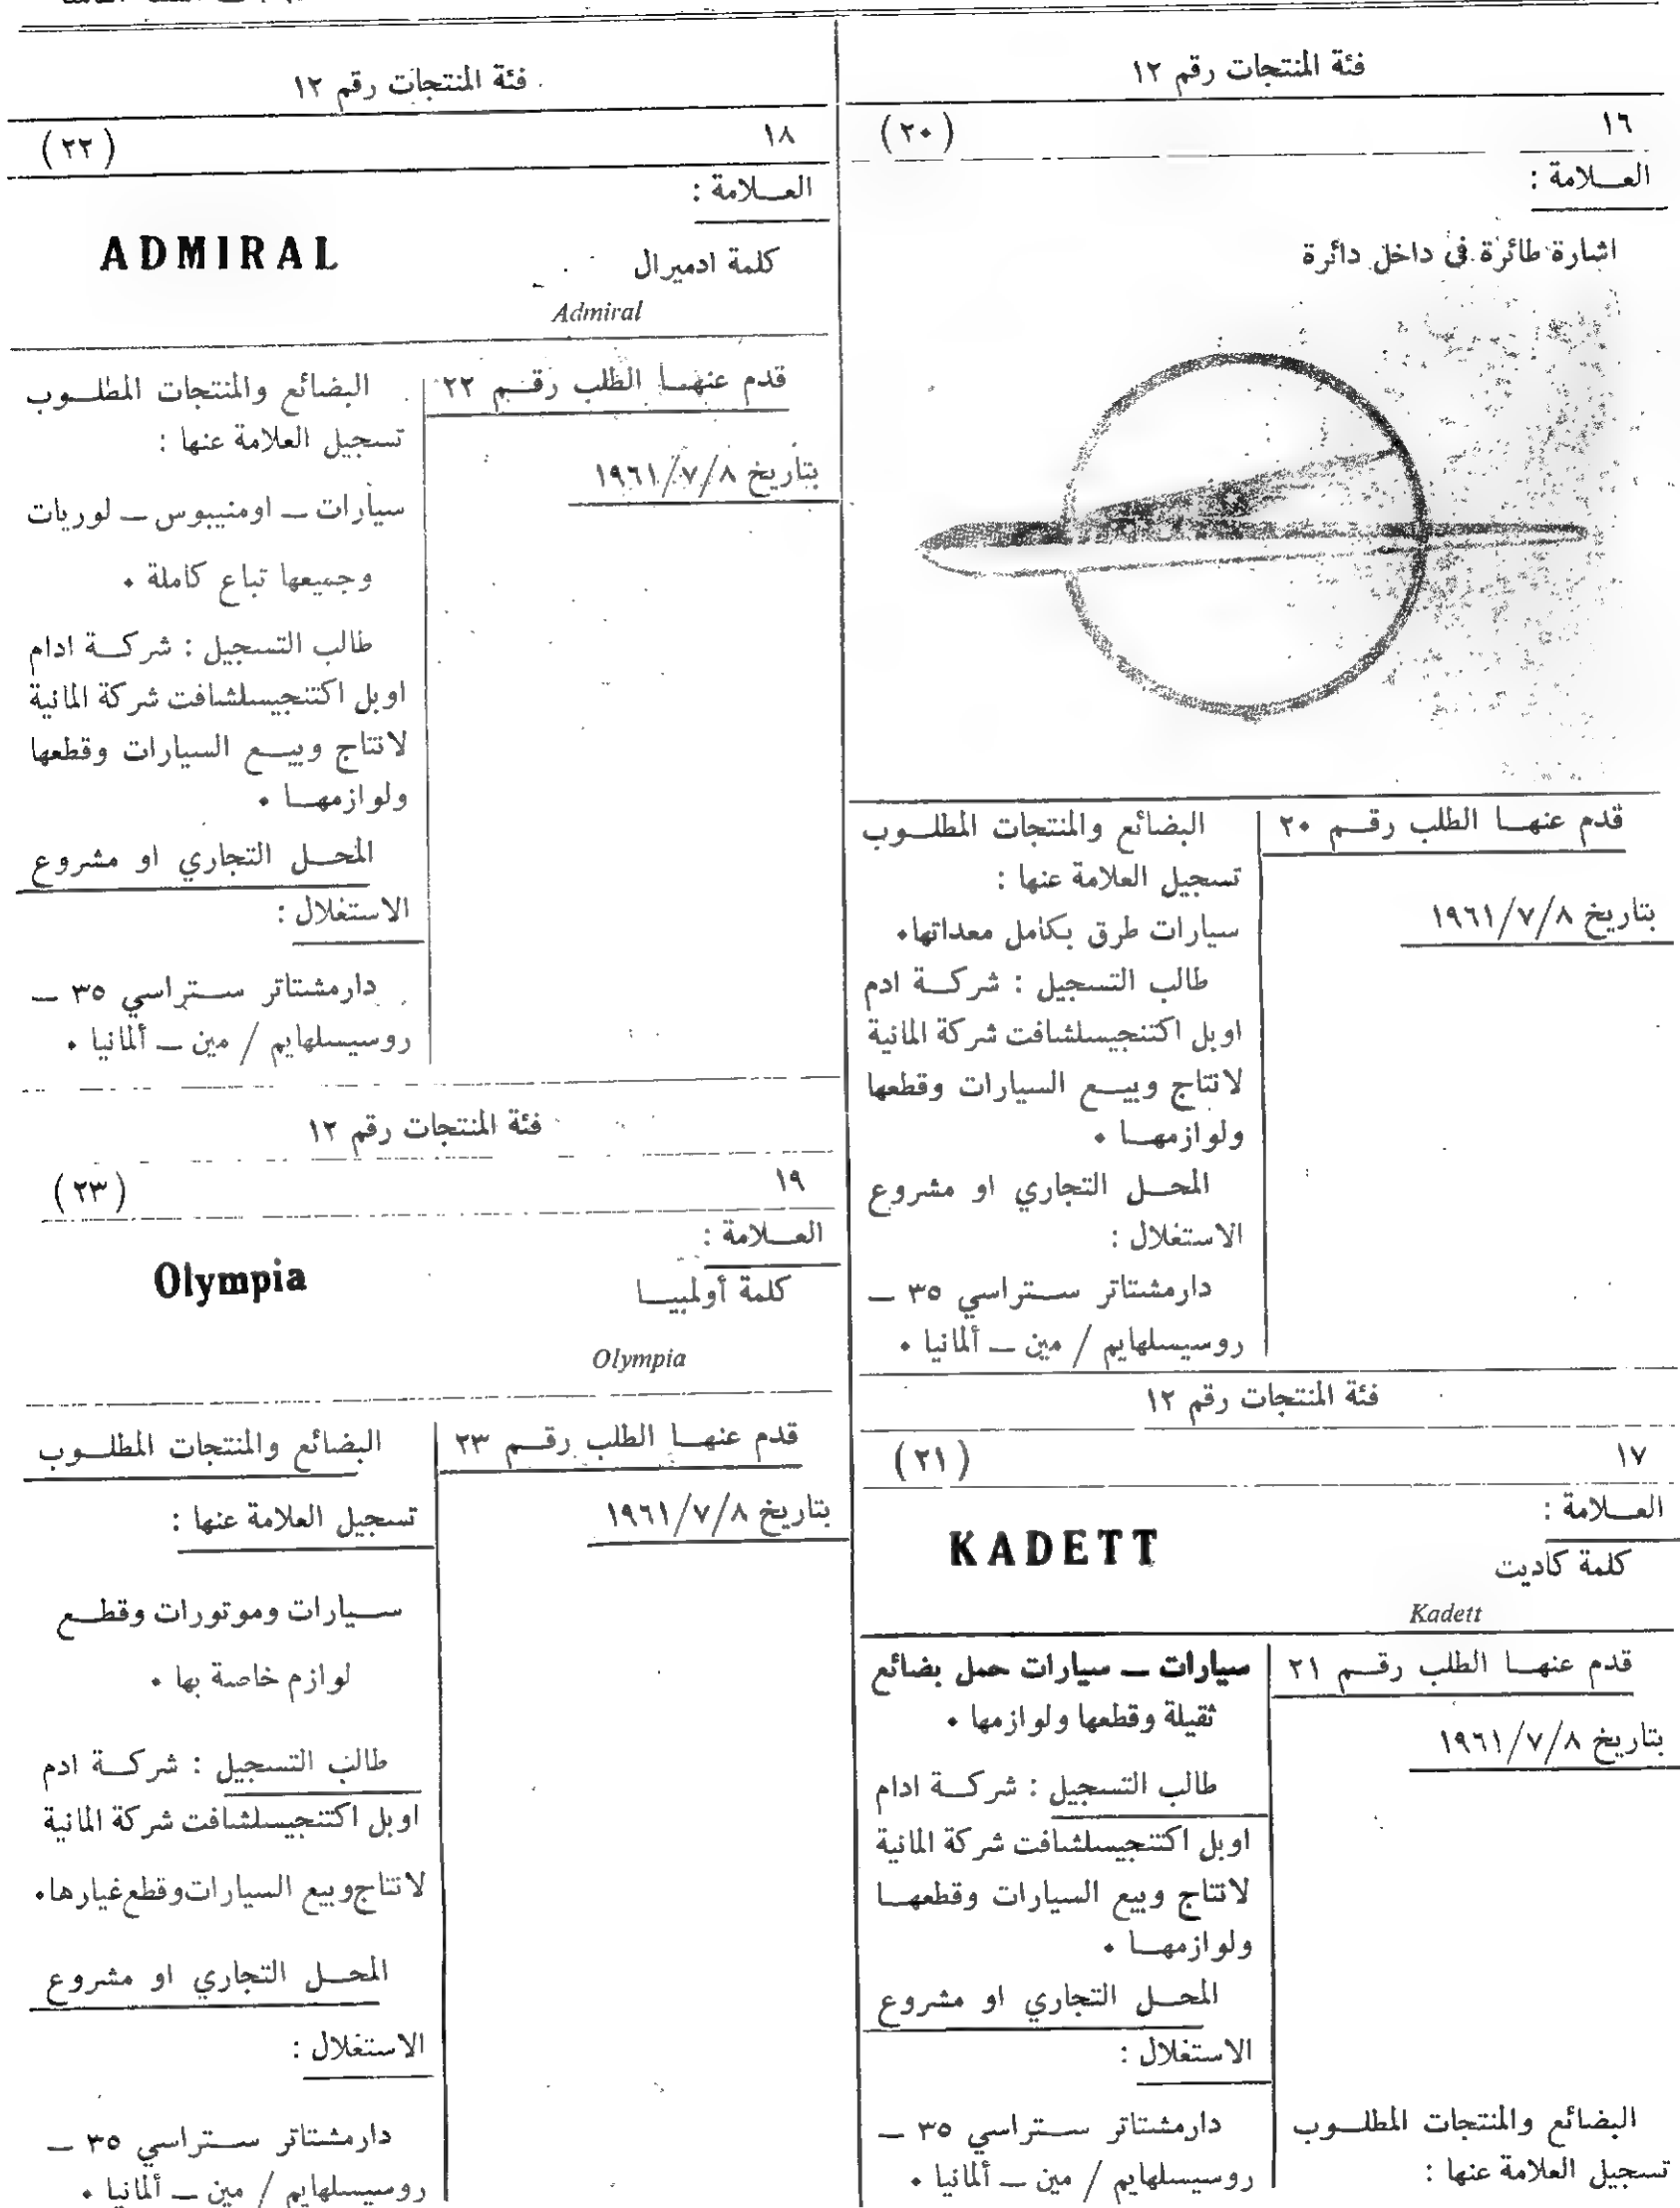 فئة المنتجات رقم ١٢
١٦ (٢٠)
العـــلامة :
اشارة طائرة في داخل دائرة
قدم عنهـــا الطلب رقـــم ٢٠
بتاريخ ١٩٦١/٧/٨
البضائع والمنتجات المطلـــوب
تسجيل العلامة عنها :
سيارات طرق بكامل معداتها٠
طالب التسجيل : شركـــة ادم
اوبل اكتنجيسلشافت شركة المانية
لانتاج وبيـــع السيارات وقطعها
ولوازمهـــا ٠
المحـــل التجاري او مشروع
الاستغلال :
دارمشتاتر ستراسي ٣٥ —
روسيسلهايم / مين — ألمانيا ٠
فئة المنتجات رقم ١٢
١٧ (٢١)
العـــلامة :
كلمة كاديت KADETT
Kadett
قدم عنهـــا الطلب رقـــم ٢١
بتاريخ ١٩٦١/٧/٨
البضائع والمنتجات المطلـــوب
تسجيل العلامة عنها :
سيارات — سيارات حمل بضائع
ثقيلة وقطعها ولوازمها ٠
طالب التسجيل : شركـــة ادام
اوبل اكتنجيسلشافت شركة المانية
لانتاج وبيع السيارات وقطعهـــا
ولوازمهـــا ٠
المحـــل التجاري او مشروع
الاستغلال :
دارمشتاتر ستراسي ٣٥ —
روسيسلهايم / مين — ألمانيا ٠
فئة المنتجات رقم ١٢
١٨ (٢٢)
العـــلامة :
كلمة ادميرال ADMIRAL
Admiral
قدم عنهـــا الطلب رقـــم ٢٢
بتاريخ ١٩٦١/٧/٨
البضائع والمنتجات المطلـــوب
تسجيل العلامة عنها :
سيارات — اومنيبوس — لوريات
وجميعها تباع كاملة ٠
طالب التسجيل : شركـــة ادام
اوبل اكتنجيسلشافت شركة المانية
لانتاج وبيـــع السيارات وقطعها
ولوازمهـــا ٠
المحـــل التجاري او مشروع
الاستغلال :
دارمشتاتر ستراسي ٣٥ —
روسيسلهايم / مين — ألمانيا ٠
فئة المنتجات رقم ١٢
١٩ (٢٣)
العـــلامة :
كلمة أولمبيـــا Olympia
Olympia
قدم عنهـــا الطلب رقـــم ٢٣
بتاريخ ١٩٦١/٧/٨
البضائع والمنتجات المطلـــوب
تسجيل العلامة عنها :
ســـيارات وموتورات وقطـــع
لوازم خاصة بها ٠
طالب التسجيل : شركـــة ادم
اوبل اكتنجيسلشافت شركة المانية
لانتاج وبيع السيارات وقطع غيارها٠
المحـــل التجاري او مشروع
الاستغلال :
دارمشتاتر ستراسي ٣٥ —
روسيسلهايم / مين — ألمانيا ٠